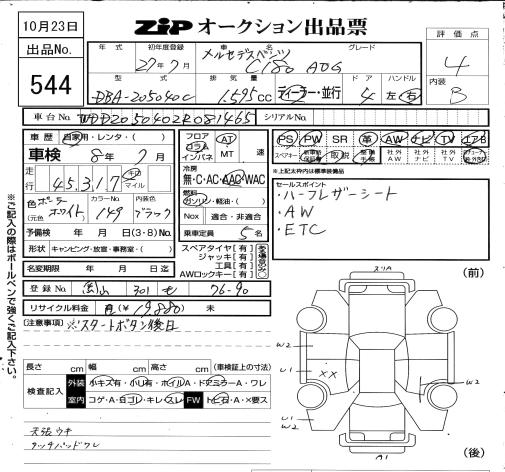 10月23日
ZIP オークション出品票
出品No.
544
年式
初年度登録
27年7月
車名
メルセデスベンツ
C180 AVG
グレード
評価点
4
内装
B
型式
DBA-205040C
排気量
1.595cc
ディーラー・並行
ドア
4
ハンドル
左・右
車台No.
WDD2050402R081465
シリアルNo.
車歴 自家用・レンタ・( )
車検 8年7月
走行
45,317
キロ
マイル
色
ポーラーホワイト
(元色)
カラーNo.
149
内装色
ブラック
予備検 年 月 日(3・8)No.
形状 キャンピング・放宣・事務室・( )
名変期限 年 月 日迄
フロア
コラム
インパネ
AT
MT
速
冷房
無・C・AC・AAC・WAC
燃料
ガソリン・軽油・( )
Nox 適合・非適合
乗車定員 5名
スペアタイヤ[有]
ジャッキ[有]
工具[有]
AWロックキー[有]
PS PW SR 革 AW ナビ TV エアB
スペアキー 取説
社外AW 社外ナビ 社外TV
※上記太枠内は標準装備品
セールスポイント
・ハーフレザーシート
・AW
・ETC
登録No. 301 も 76-90
リサイクル料金 有(¥19,880) 未
(注意事項) ※スタートボタン後日
長さ cm 幅 cm 高さ cm (車検証上の寸法)
検査記入
外装 小キズ有・小凹有・ホイルA・ドアミラーA・ワレ
室内 コゲ・A・ヨゴレ・キレ・スレ FW トビ石・A・×要ス
天張ウキ
タッチパッドワレ
スリA
(前)
W2
U1
XX
W2
U1
W2
A1
(後)
※ご記入の際はボールペンで強くご記入下さい。